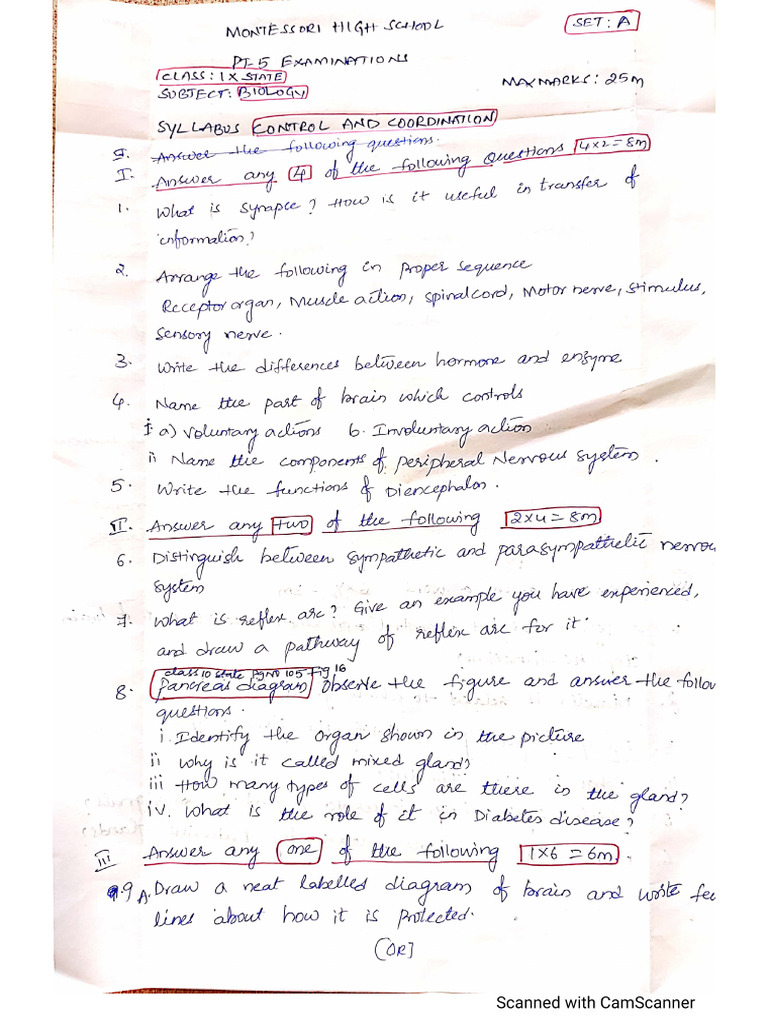 MONTESSORI HIGH SCHOOL
SET: A
PT-5 EXAMINATIONS
CLASS: IX STATE
MAX MARKS: 25m
SUBJECT: BIOLOGY
SYLLABUS CONTROL AND COORDINATION
I. Answer the following questions.
I. Answer any 4 of the following Questions 4x2=8m
1. What is synapse? How is it useful in transfer of
information?
2. Arrange the following in proper sequence
Receptor organ, Muscle action, spinal cord, Motor nerve, stimulus,
sensory nerve.
3. Write the differences between hormone and enzyme
4. Name the part of brain which controls
i a) Voluntary actions b. Involuntary action
ii Name the components of peripheral Nervous system.
5. Write the functions of Diencephalon.
II. Answer any two of the following 2x4=8m
6. Distinguish between sympathetic and parasympathetic nervou
system
7. What is reflex arc? Give an example you have experienced,
and draw a pathway of reflex arc for it.
class 10 state Pg No 105 Fig 16
8. Pancreas diagram Observe the figure and answer the follow
questions.
i. Identify the organ shown in the picture
ii Why is it called mixed gland?
iii How many types of cells are there in the gland?
iv. What is the role of it in Diabetes disease?
III Answer any one of the following 1x6=6m.
9 A. Draw a neat labelled diagram of brain and write few
lines about how it is protected.
(OR]
Scanned with CamScanner